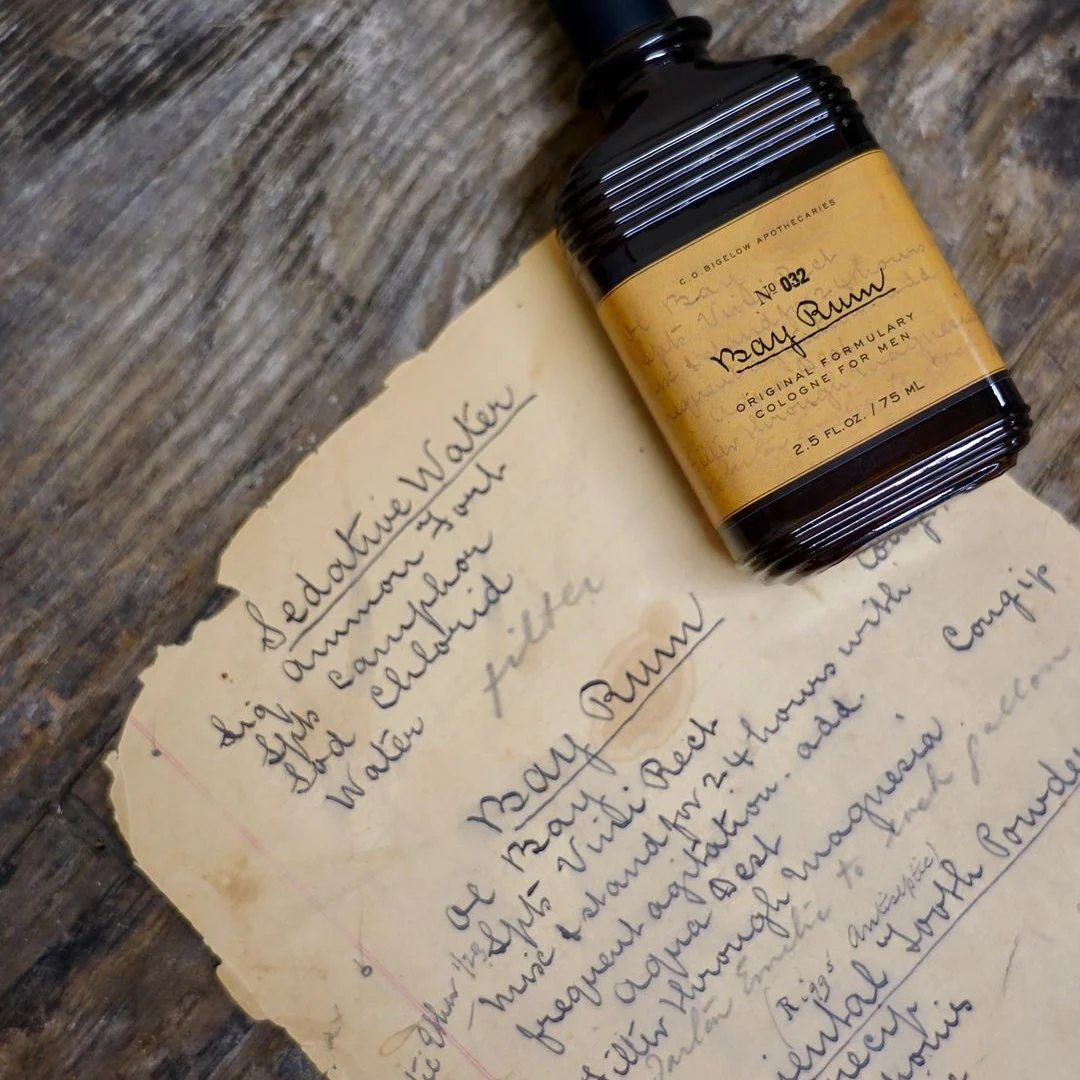 C.O. BIGELOW APOTHECARIES
No 032
Bay Rum
ORIGINAL FORMULARY
COLOGNE FOR MEN
2.5 FL.OZ. / 75 ML
Sedative Water
Liq ammon Fort
Spts Camphor
Sod Chlorid
Water
filter
Bay Rum
Ol Bay
Spts Vini Rect Cong
Mix & stand for 24 hours with
frequent agitation. add
aqua Dest Cong ip
Filter through Magnesia
to each gallon
Antiseptic
Tooth Powder